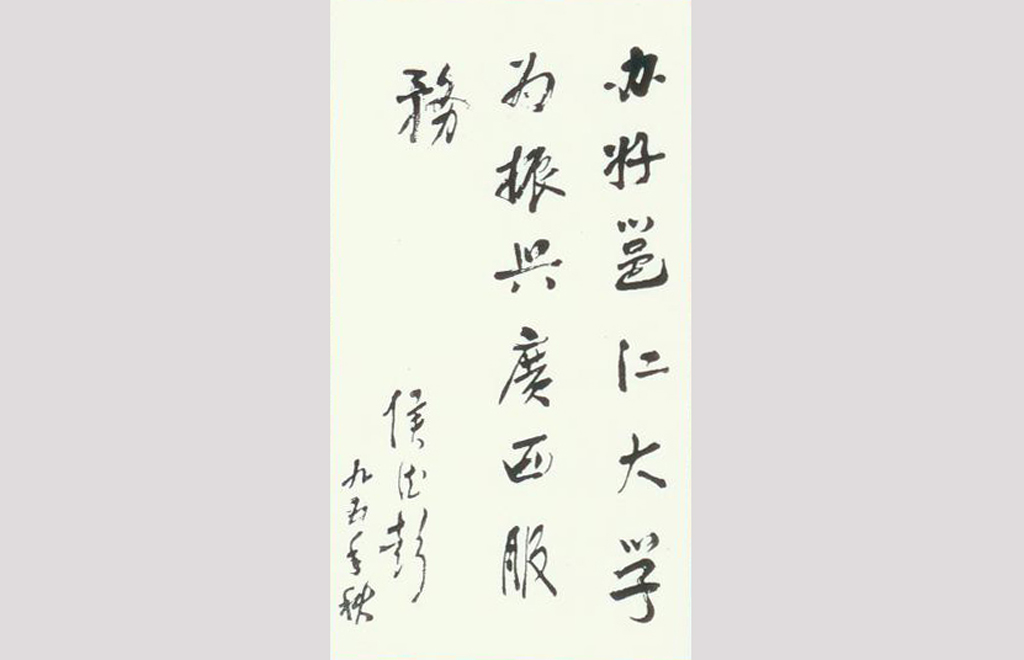 办好邕江大学
为振兴廣西服
務
侯德彭
九五年秋